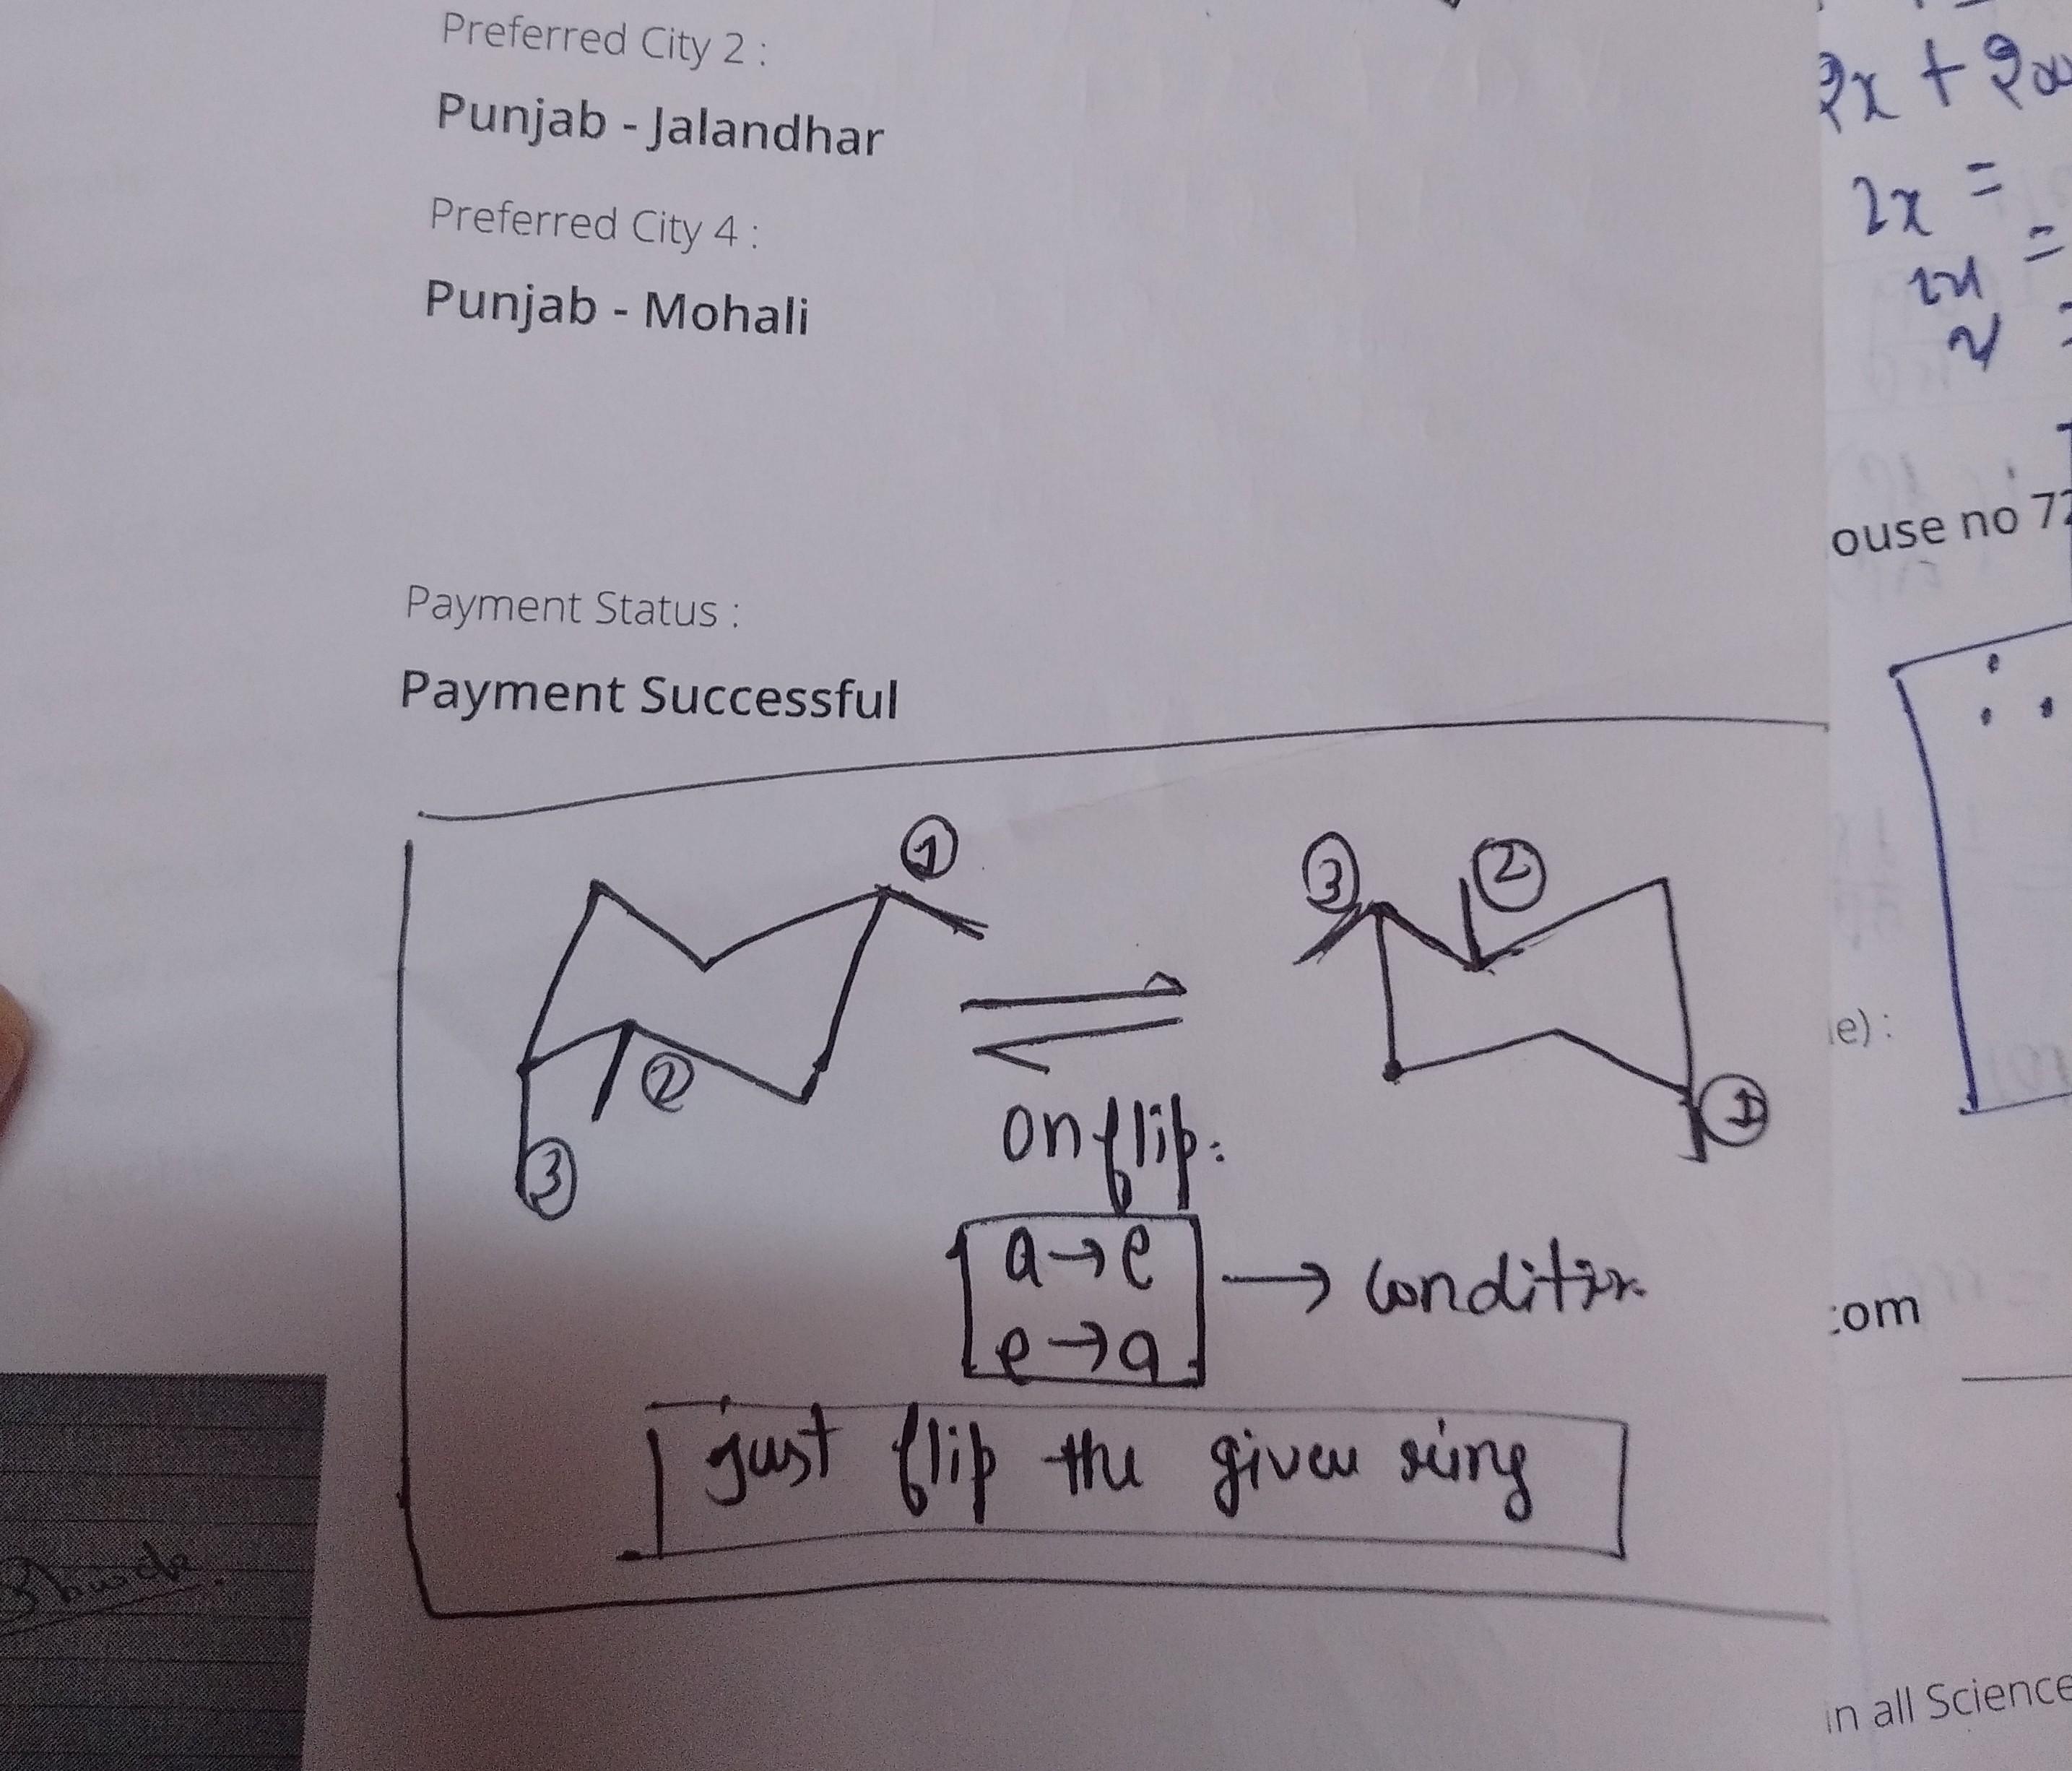 Preferred City 2 :
Punjab - Jalandhar
Preferred City 4 :
Punjab - Mohali
Payment Status :
Payment Successful
2x =
ouse no 72
e) :
:om
in all Science
①
②
③
③
②
①
on flip:
a → e
e → a
→ condition
just flip the given ring